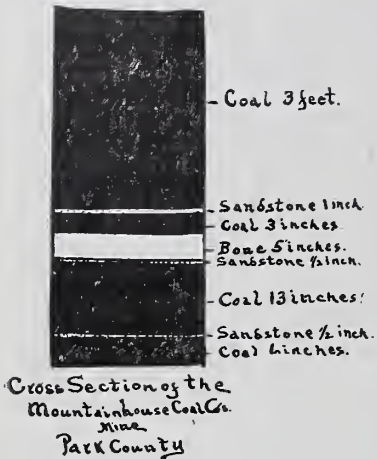 Coal 3 feet.
Sandstone 1 inch
Coal 3 inches
Bone 5 inches.
Sandstone 1/2 inch.
Coal 13 inches.
Sandstone 1/2 inch.
Coal inches.
Cross Section of the
Mountainhouse Coal Co's.
Mine
Park County